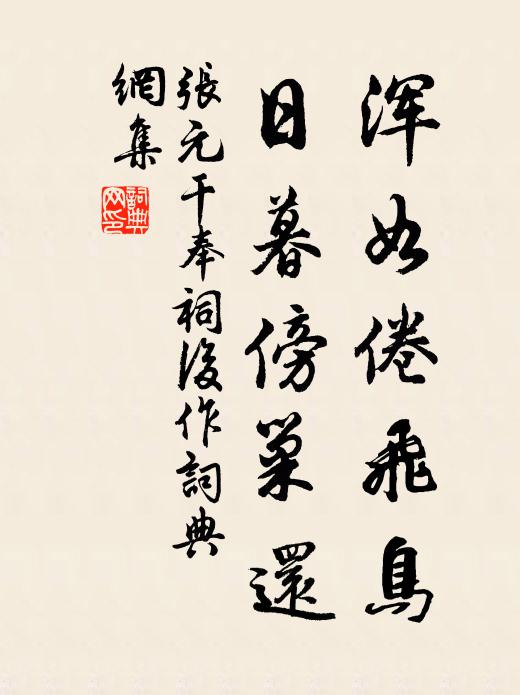 浑如倦飛鳥
日暮傍巢還
張元干奉祠後作詞典
網集
詞典網印